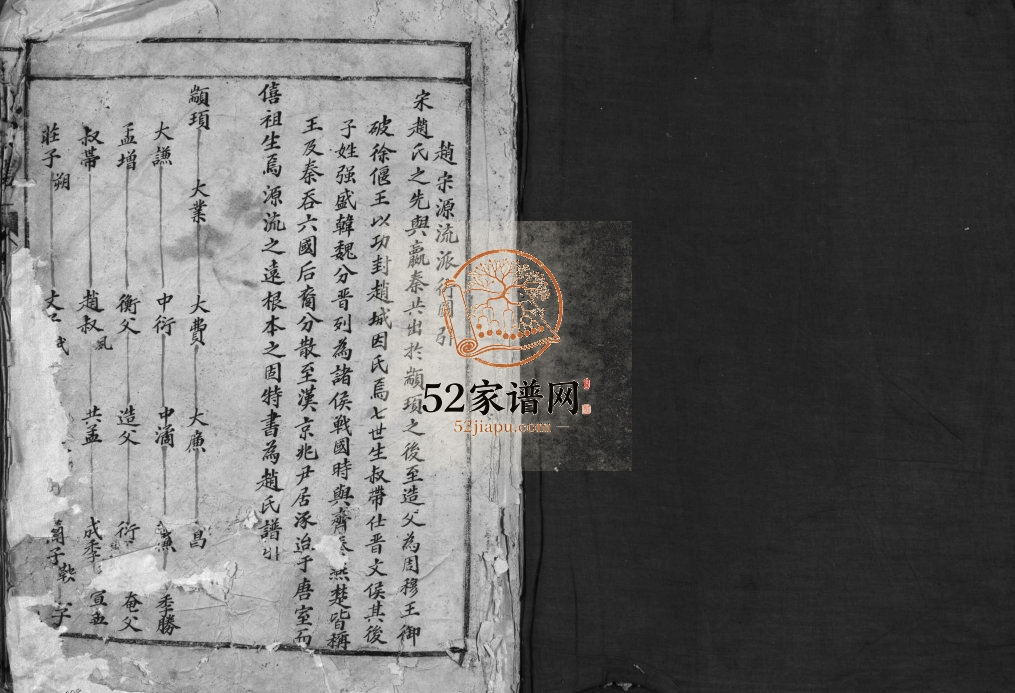 趙宋源流派衍 引
宋趙氏之先與嬴秦共出於顓頊之後至造父為周穆王御
破徐偃王以功封趙城因氏焉七世生叔帶仕晋文侯其後
子姓强盛韓魏分晋列為諸侯戰國時與齊 燕楚皆稱
王及秦吞六國后裔分散至漢京兆尹居涿迨于唐室而
僖祖生焉源流之遠根本之固特書為趙氏譜引
顓頊 大業 大費 大廉 昌
大謙 中衍 中潏 季勝
孟增 衡父 造父 衍 奄父
叔帶 趙叔 共孟 成季 宣孟
莊子 朔
52家谱网
52jiapu.com